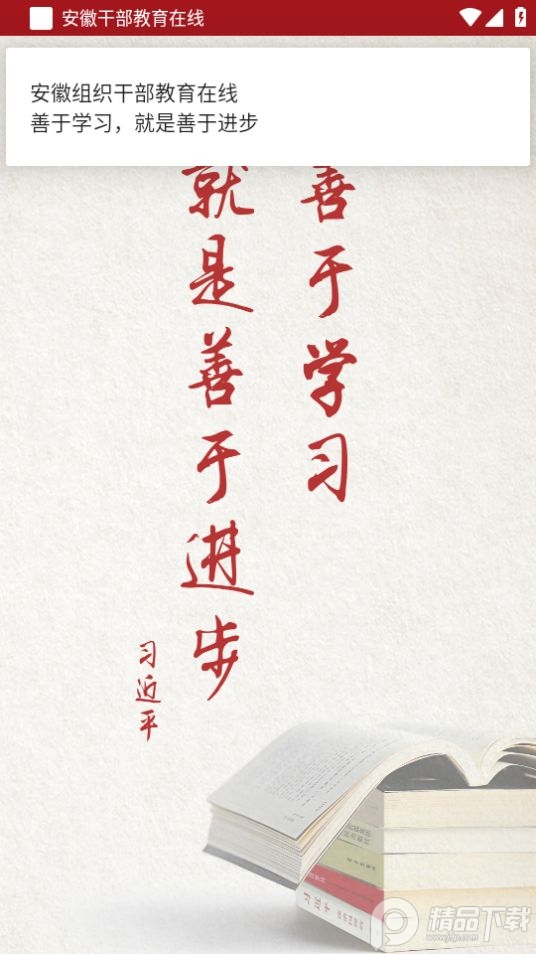 安徽干部教育在线
安徽组织干部教育在线
善于学习，就是善于进步
善于学习
就是善于进步
习近平
习近平
精品下载